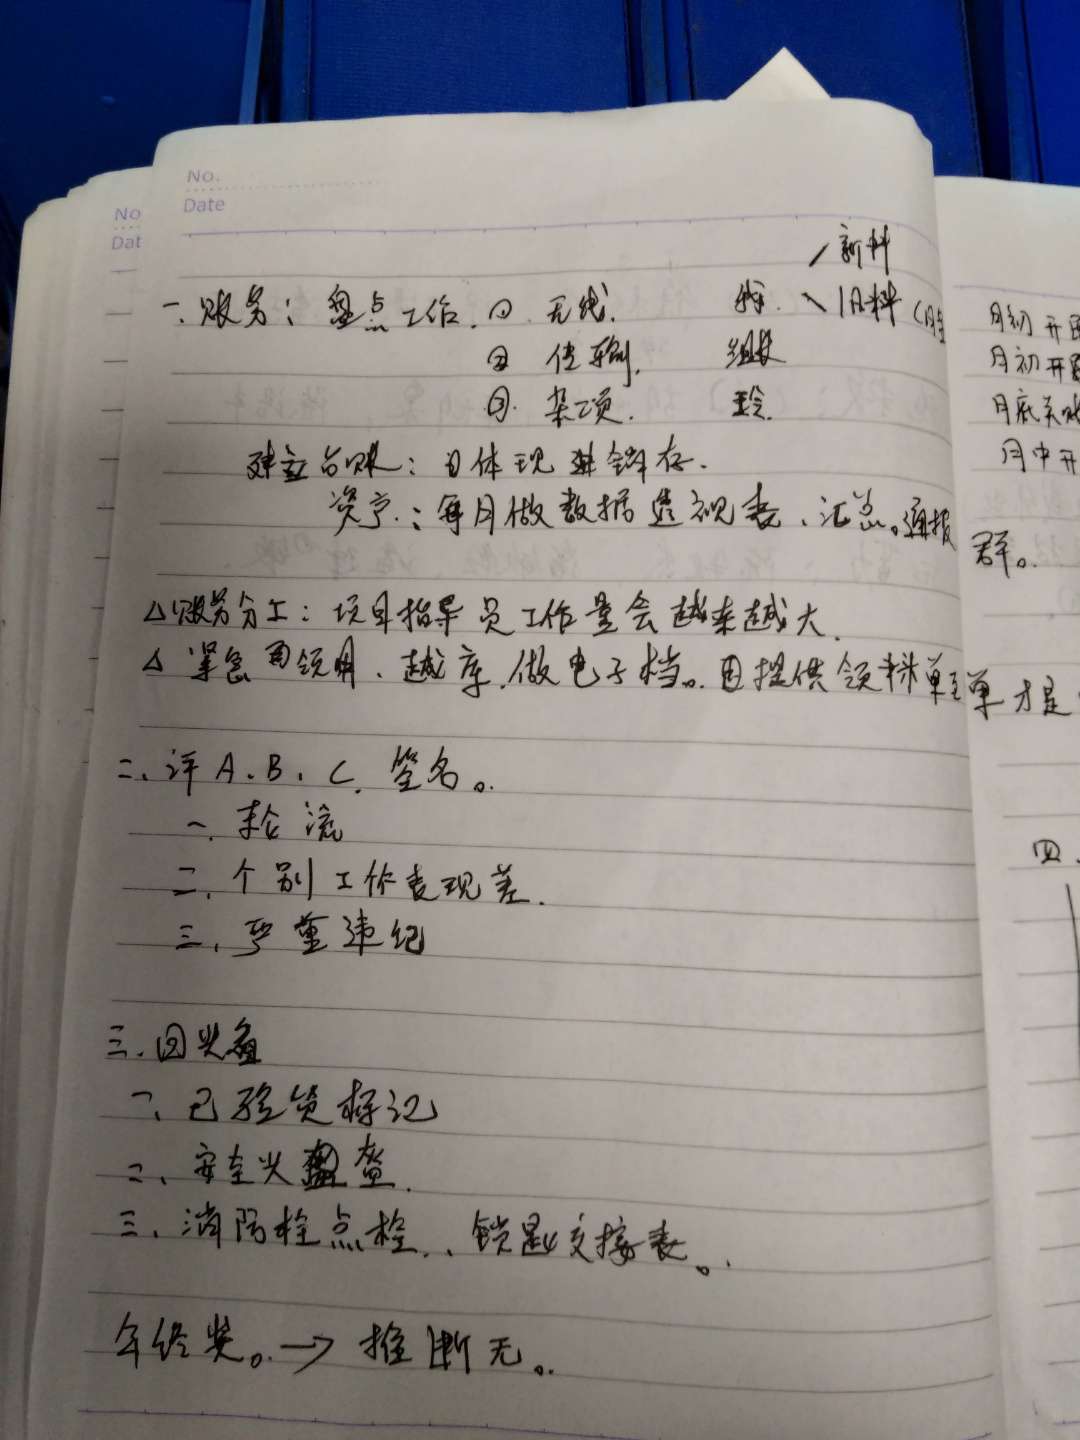 No.
Date
No
Dat
新料
一、账务：盘点工作 ① 无线. 我. 旧料
② 传输. 组长
③ 杂项. 玲
建立台账：日体现进销存.
资产：每月做数据透视表、汇总。通报群。
△账务分工：项目指导员工作量会越来越大.
△紧急 领用、越库.做电子档。 提供领料单 单才是
二、评A、B、C.签名。
一、轮流
二、个别工作表现差.
三、严重违纪
三.回头
一、已验货标记
二、安全头盔.
三、消防栓点检、锁匙交接表。
年终奖。→推断无。
月初开
月初开
月底关账
月中开
四、